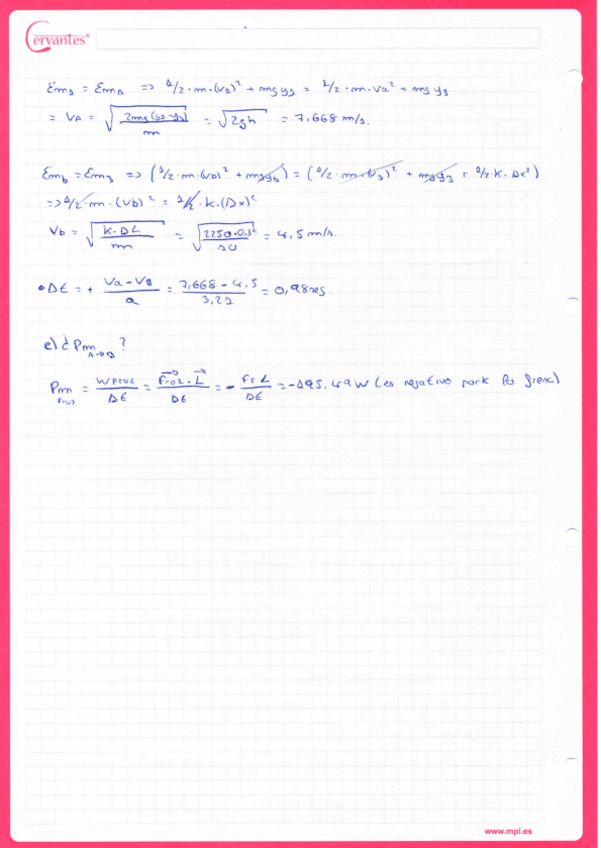 Cervantes®
Em1 = EmA => 1/2·m·(v1)² + mgy1 = 1/2·m·va² + mgy1
= VA = √(2mg(y1-y2)/m) = √2gh = 7.668 m/s.
Emb = Em3 => (1/2·m·(vb)² + mgyb) = (1/2·m·(v3)² + mgy3 + 1/2·k·Dx²)
=> 1/2·m·(vb)² = 1/2·k·(Dx)²
Vb = √(K·DL/m) = √(2250·0.3²/10) = 4.5 m/s.
•Dt = + (Va-VB)/a = (7,668-4.5)/3,22 = 0,98 seg.
e) ¿Pm A→B?
Pm Froz = WFroz/Dt = Froz·L/Dt = - Fr L/Dt = -195.49 W (es negativo pork lo frena)
www.mpi.es